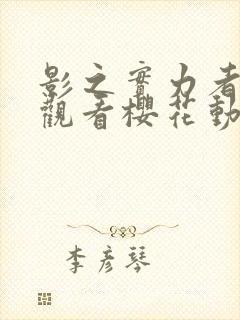 影之實力者
觀看櫻花動
李彥琴